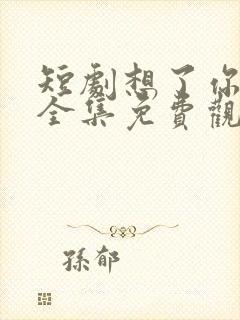 短劇想了你
全集免費觀
孫郁